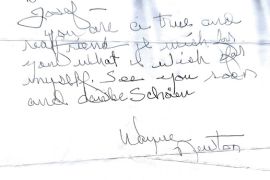 Josef -
you are a true and
real friend I wish for
you what I wish for
myself. See you soon
and danke Schöen
Wayne
Newton